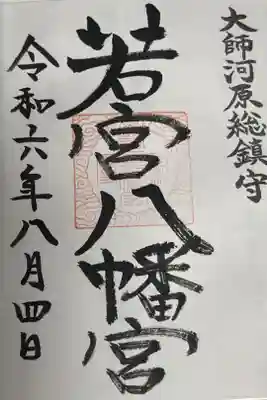 大師河原総鎮守
若宮八幡宮
令和六年八月四日